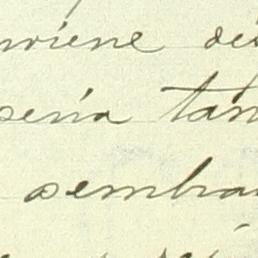 nviene des
sería tam
sembra